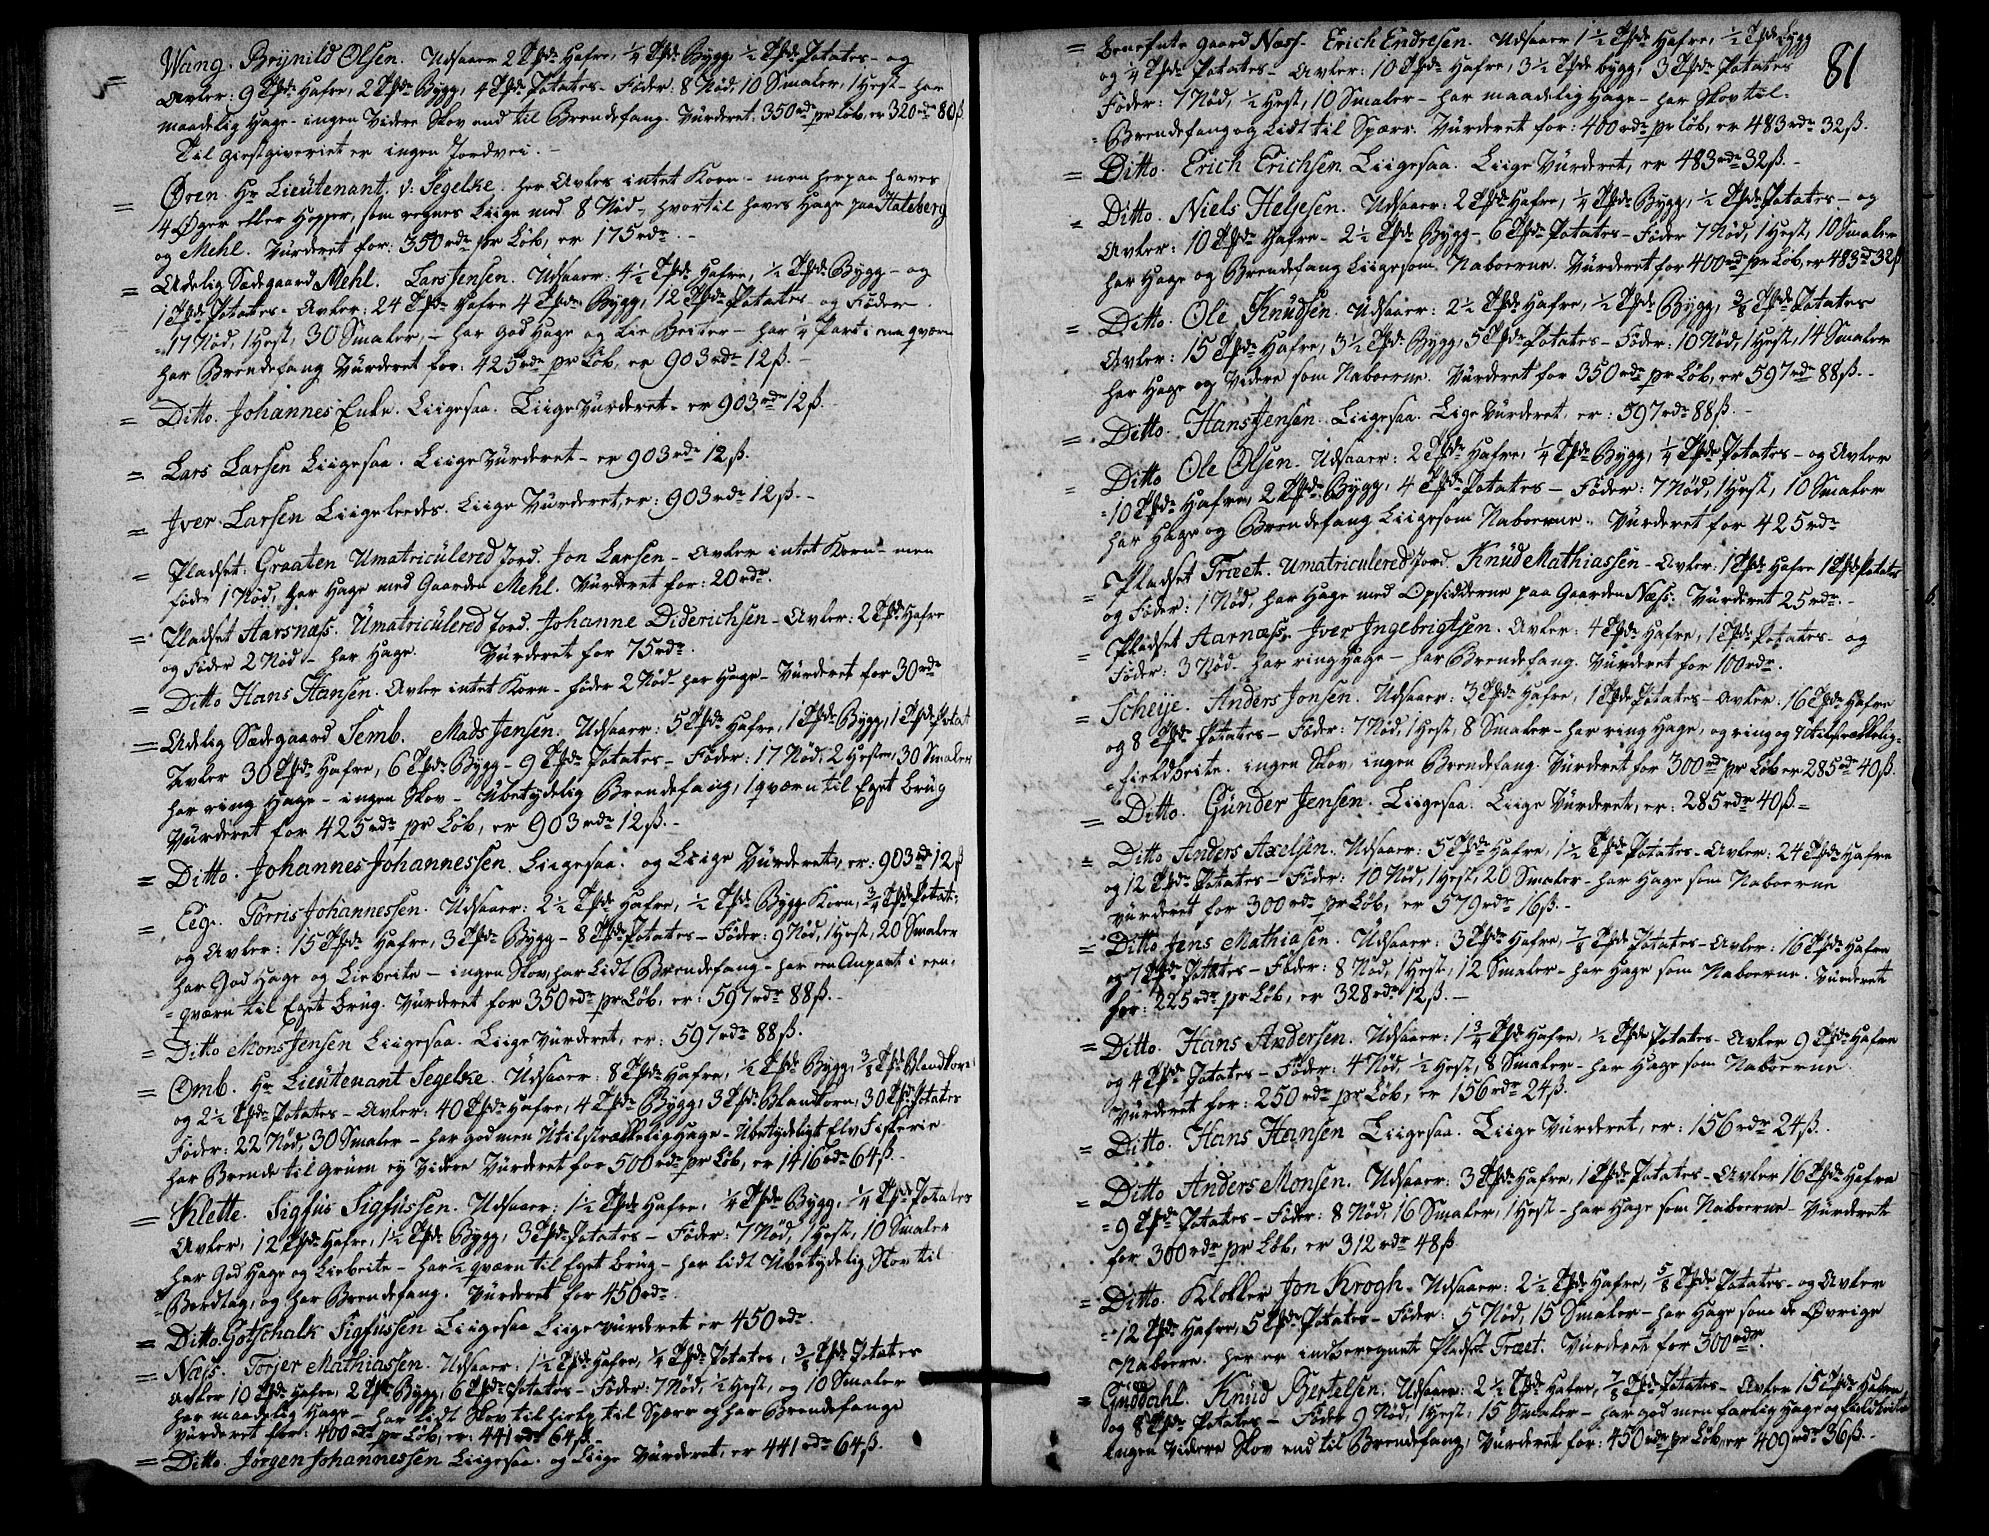 = Wang. Brynild Olsen. Udsaaer 2 Tdr Hafre, 1/4 Tdr Bygg, 1/2 Tdr Potates – og
Avler: 9 Tdr Hafre, 2 Tdr Bygg, 4 Tdr Potates – Føder: 8 Nød, 10 Smaler, 1 Hest – har
maadelig Hage – ingen Videre Skov end til Brendefang. Vürderet: 350 rdr pr Løb, er 320 rdr 80 ß.
Til giestgiveriet er ingen Jordvei. –
= Øren. Hr Lieutenant v: Segelke. her Avles intet Korn – men herpaa haves
4 Øger eller Hopper, som regnes Liige med 8 Nød –, hvortil haves Hage paa Hateberg
og Mehl. Vürderet for: 350 rdr pr Løb, er 175 rdr. –
= Adelig Sædegaard Mehl. Lars Jensen. Udsaaer: 4 1/2 Tdr Hafre, 1/2 Tdr Bygg – og
1 Tdr Potates – Avler: 24 Tdr Hafre 4 Tdr Bygg, 12 Tdr Potates og Føder
17 Nød, 1 Hest, 30 Smaler, – har God Hage og Lie Beiter – har 1/4 Part i en qværn
har Brendefang Vürderet for: 425 rdr pr Løb, er 903 rdr 12 ß. –
= Ditto. Johannes Enke. Liigesaa. Liige Vürderet – er 903 rdr 12 ß.
= Lars Larsen Liigesaa. Liige Vürderet – er 903 rdr 12 ß.
= Iver Larsen Liigeleedes. Liige Vürderet, er: 903 rdr 12 ß. –
= Pladset: Graaten Umatriculered Jord. Jon Larsen – Avler intet Korn – men
føder 1 Nød, har Hage med Gaarden Mehl. Vürderet for: 20 rdr.
= Pladset Aarsnæss. Umatriculered Jord. Johanne Diderichsen – Avler: 2 Tdr Hafre
og Føder 2 Nød – har Hage. Vürderet for 75 rdr.
= Ditto Hans Hansen. Avler intet Korn – føder 2 Nød har Hage – Vürderet for 30 rdr
= Adelig Sædegaard Semb. Mads Jensen. Udsaaer: 5 Tdr Hafre, 1 Tdr Bygg, 1 Tdr Potat
Avler 30 Tdr Hafre, 6 Tdr Bygg – 9 Tdr Potates – Føder: 17 Nød, 2 Hester, 30 Smaler
har ring Hage – ingen Skov – Ubetydelig Brendefang, 1 qværn til Eget brüg
Vürderet for 425 rdr pr Løb, er 903 rdr 12 ß. –
= Ditto. Johannes Johannessen. Liigesaa. og Liige Vürderet, er: 903 rdr 12 ß
= Eeg. Torris Johannessen. Udsaaer: 2 1/2 Tdr Hafre, 1/2 Tdr Bygg Korn, 3/4 Tdr Potat:
og Avler: 15 Tdr Hafre, 3 Tdr Bygg – 8 Tdr Potates – Føder: 9 Nød, 1 Hest, 20 Smaler
har God Hage og Liebeite – ingen Skov, har Lidt Brendefang – har een Anpart i een
qværn til Eget brug. Vürderet for 350 rdr pr Løb, er: 597 rdr 88 ß. –
= Ditto Mons Jensen Liigesaa. Liige Vürderet, er: 597 rdr 88 ß.
= Omb. Hr Lieutenant Segelke. Udsaaer: 8 Tdr Hafre, 1/2 Tdr Bygg, 3/8 Tdr Blandkorn
og 2 1/2 Tdr Potates – Avler: 40 Tdr Hafre, 4 Tdr Bygg, 3 Tdr Blandkorn, 30 Tdr Potates
Føder: 22 Nød, 30 Smaler – har god men Utilstrækkelig Hage – Ubetydeligt Elv Fisterie
har Brende til Gruen ey Videre Vürderet for 500 rdr pr Løb, er 1416 rdr 64 ß. –
= Klette. Sigfus Sigfüssen. Udsaaer: 1 1/2 Tdr Hafre, 1/4 Tdr Bygg, 1/4 Tdr Potates
Avler, 12 Tdr Hafre, 1 1/2 Tdr Bygg, 3 Tdr Potates – Føder: 7 Nød, 1 Hest, 10 Smaler
har God Hage og Liebeite – har 1/2 qværn til Eget brüg – har lidt Ubetydelig Skov til
Bordtag, og har Brendefang. Vürderet for 450 rdr.
= Ditto. Gotschalk Sigfüssen Liigesaa Liige vürderet er 450 rdr.
= Næss. Torjer Mathiassen. Udsaaer: 1 1/2 Tdr Hafre, 1/4 Tdr Potates, 3/8 Tdr Potates
Avler 10 Tdr Hafre, 2 Tdr Bygg, 6 Tdr Potates – Føder: 7 Nød, 1/2 Hest, og 10 Smaler
har maadelig Hage – har lidt Skov til hielp til Spærr og har Brendefange
Vürderet for: 400 rdr pr Løb, er: 441 rdr 64 ß –
= Ditto. Jørgen Johannessen Liigesaa. og Liige Vürderet, er 441 rdr 64 ß.
81
= Benefnte gaard Næss – Erich Endresen. Udsaaer 1 1/2 Tdr Hafre, 1/2 Tdr Bygg
og 1/4 Tdr Potates – Avler: 10 Tdr Hafre, 3 1/2 Tdr bygg, 3 Tdr Potates
Føder: 7 Nød, 1/2 Hest, 10 Smaler – har maadelig Hage – har Skov til
Brendefang og Lidt til Spærr. Vürderet for: 400 rdr pr Løb, er 483 rdr 32 ß.
= Ditto. Erich Erichsen. Liigesaa. Liige Vürderet, er 483 rdr 32 ß. –
= Ditto. Niels Helgesen. Udsaaer: 2 Tdr Hafre, 1/4 Tdr Bygg, 1/2 Tdr Potates – og
Avler: 10 Tdr Hafre – 2 1/2 Tdr Bygg – 6 Tdr Potates – Føder 7 Nød, 1 Hest, 10 Smaler
har Hage og Brendefang Liigesom Naboerne. Vürderet for 400 rdr pr Løb, er 483 rdr 32 ß
= Ditto. Ole Knudsen. Udsaaer: 2 1/2 Tdr Hafre, 1/2 Tdr Bygg, 3/8 Tdr Potates
Avler: 15 Tdr Hafre, 3 1/2 Tdr Bygg, 5 Tdr Potates – Føder: 10 Nød, 1 Hest, 14 Smaler
har Hage og Videre som Naboerne. Vürderet for 350 rdr pr Løb, er 597 rdr 88 ß. –
= Ditto. Hans Jensen. Liigesaa. Lige Vürderet, er: 597 rdr 88 ß. –
= Ditto Ole Olsen. Udsaaer: 2 Tdr Hafre, 1/4 Tdr Bygg, 1/4 Tdr Potates – og Avler
10 Tdr Hafre, 2 Tdr Bygg, 4 Tdr Potates – Føder: 7 Nød, 1 Hest, 10 Smaler
har Hage og Brendefang Liigesom Naboerne. Vürderet for 425 rdr
= Pladset Træet. Umatriculered Jord. Knüd Mathiassen – Avler: 1 Tdr Hafre 1 Tdr Potates
og Føder: 1 Nød, har Hage med Opsidderne paa Gaarden Næss. Vürderet 25 rdr. –
= Pladset Aarnæss. Iver Ingebrigtsen. Avler: 4 Tdr Hafre, 1 Tdr Potates – og
Føder: 3 Nød – har ring Hage – har Brendefang. Vürderet for 100 rdr.
= Scheije. Anders Jonsen. Udsaaer: 3 Tdr Hafre, 1 Tdr Potates – Avler: 16 Tdr Hafre
og 8 Tdr Potates – Føder: 7 Nød, 1 Hest, 8 Smaler – har ring Hage, og ring og Utilstrækkelig
fieldbeite. ingen Skov, ingen Brendefang. Vürderet for 300 rdr pr Løb er 285 rdr 40 ß.
= Ditto. Günder Jensen. Liigesaa. Liige Vürderet, er: 285 rdr 40 ß. –
= Ditto Anders Axelsen. Udsaaer: 5 Tdr Hafre, 1 1/2 Tdr Potates – Avler: 24 Tdr Hafre
og 12 Tdr Potates – Føder: 10 Nød, 1 Hest, 20 Smaler – har Hage som Naboerne
vürderet for 300 rdr pr Løb, er 579 rdr 16 ß. –
= Ditto Jens Mathiasen. Udsaaer: 3 Tdr Hafre, 7/8 Tdr Potates – Avler: 16 Tdr Hafre
og 7 Tdr Potates – Føder: 8 Nød, 1 Hest, 12 Smaler – har Hage som Naboerne. Vürderet
for: 225 rdr pr Løb, er 328 rdr 12 ß. –
= Ditto. Hans Andersen. Udsaaer: 1 3/4 Tdr Hafre, 1/2 Tdr Potates – Avler 9 Tdr Hafre
og 4 Tdr Potates – Føder: 4 Nød, 1/2 Hest, 8 Smaler – har Hage som Naboerne
Vürderet for: 250 rdr pr Løb, er 156 rdr 24 ß.
= Ditto. Hans Hansen Liigesaa. Liige Vürderet, er: 156 rdr 24 ß.
= Ditto Anders Monsen. Udsaaer: 3 Tdr Hafre, 1 Tdr Potates – Avler 16 Tdr Hafre
9 Tdr Potates – Føder: 8 Nød, 16 Smaler, 1 Hest – har Hage som Naboerne – Vürderet
for 300 rdr pr Løb, er 312 rdr 48 ß
= Ditto. Klokker Jon Krogh. Udsaaer: 2 1/2 Tdr Hafre, 5/8 Tdr Potates – og Avler
12 Tdr Hafre, 5 Tdr Potates – Føder: 5 Nød, 15 Smaler – har Hage som de Øvrige
Naboere. her er indberegnet Pladset Træet. Vürderet for 300 rdr.
= Guddahl. Knüd Bertelsen. Udsaaer: 2 1/2 Tdr Hafre, 7/8 Tdr Potates – Avler 15 Tdr Hafre
og 8 Tdr Potates – Føder 9 Nød, 1 Hest, 15 Smaler – har god men farlig Hage og fieldbeite
Ingen Videre Skov end til Brendefang, Vürderet for: 450 rdr pr Løb er 409 rdr 36 ß. –